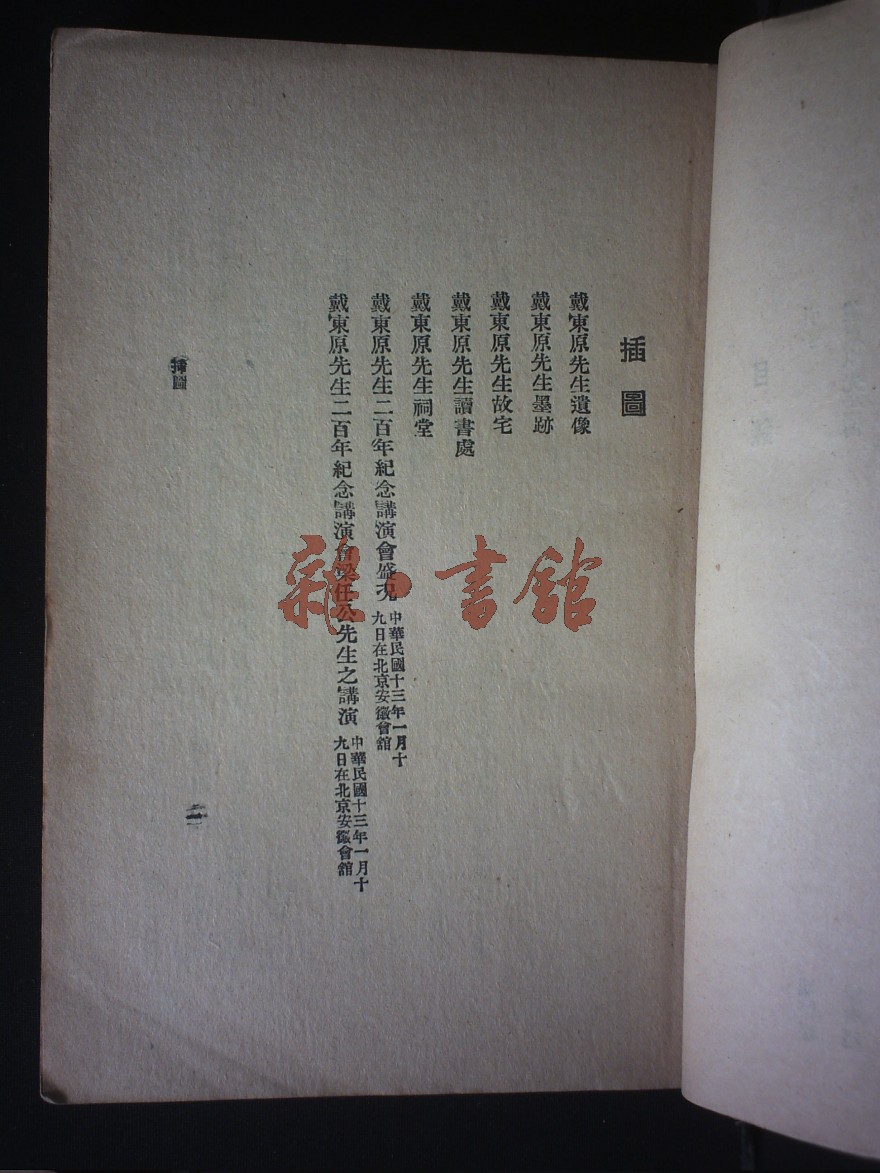 插圖
戴東原先生遺像
戴東原先生墨跡
戴東原先生故宅
戴東原先生讀書處
戴東原先生祠堂
戴東原先生二百年紀念講演會盛況 中華民國十三年一月十九日在北京安徽會館
戴東原先生二百年紀念講演會梁任公先生之講演 中華民國十三年一月十九日在北京安徽會館
插圖
雜·書館